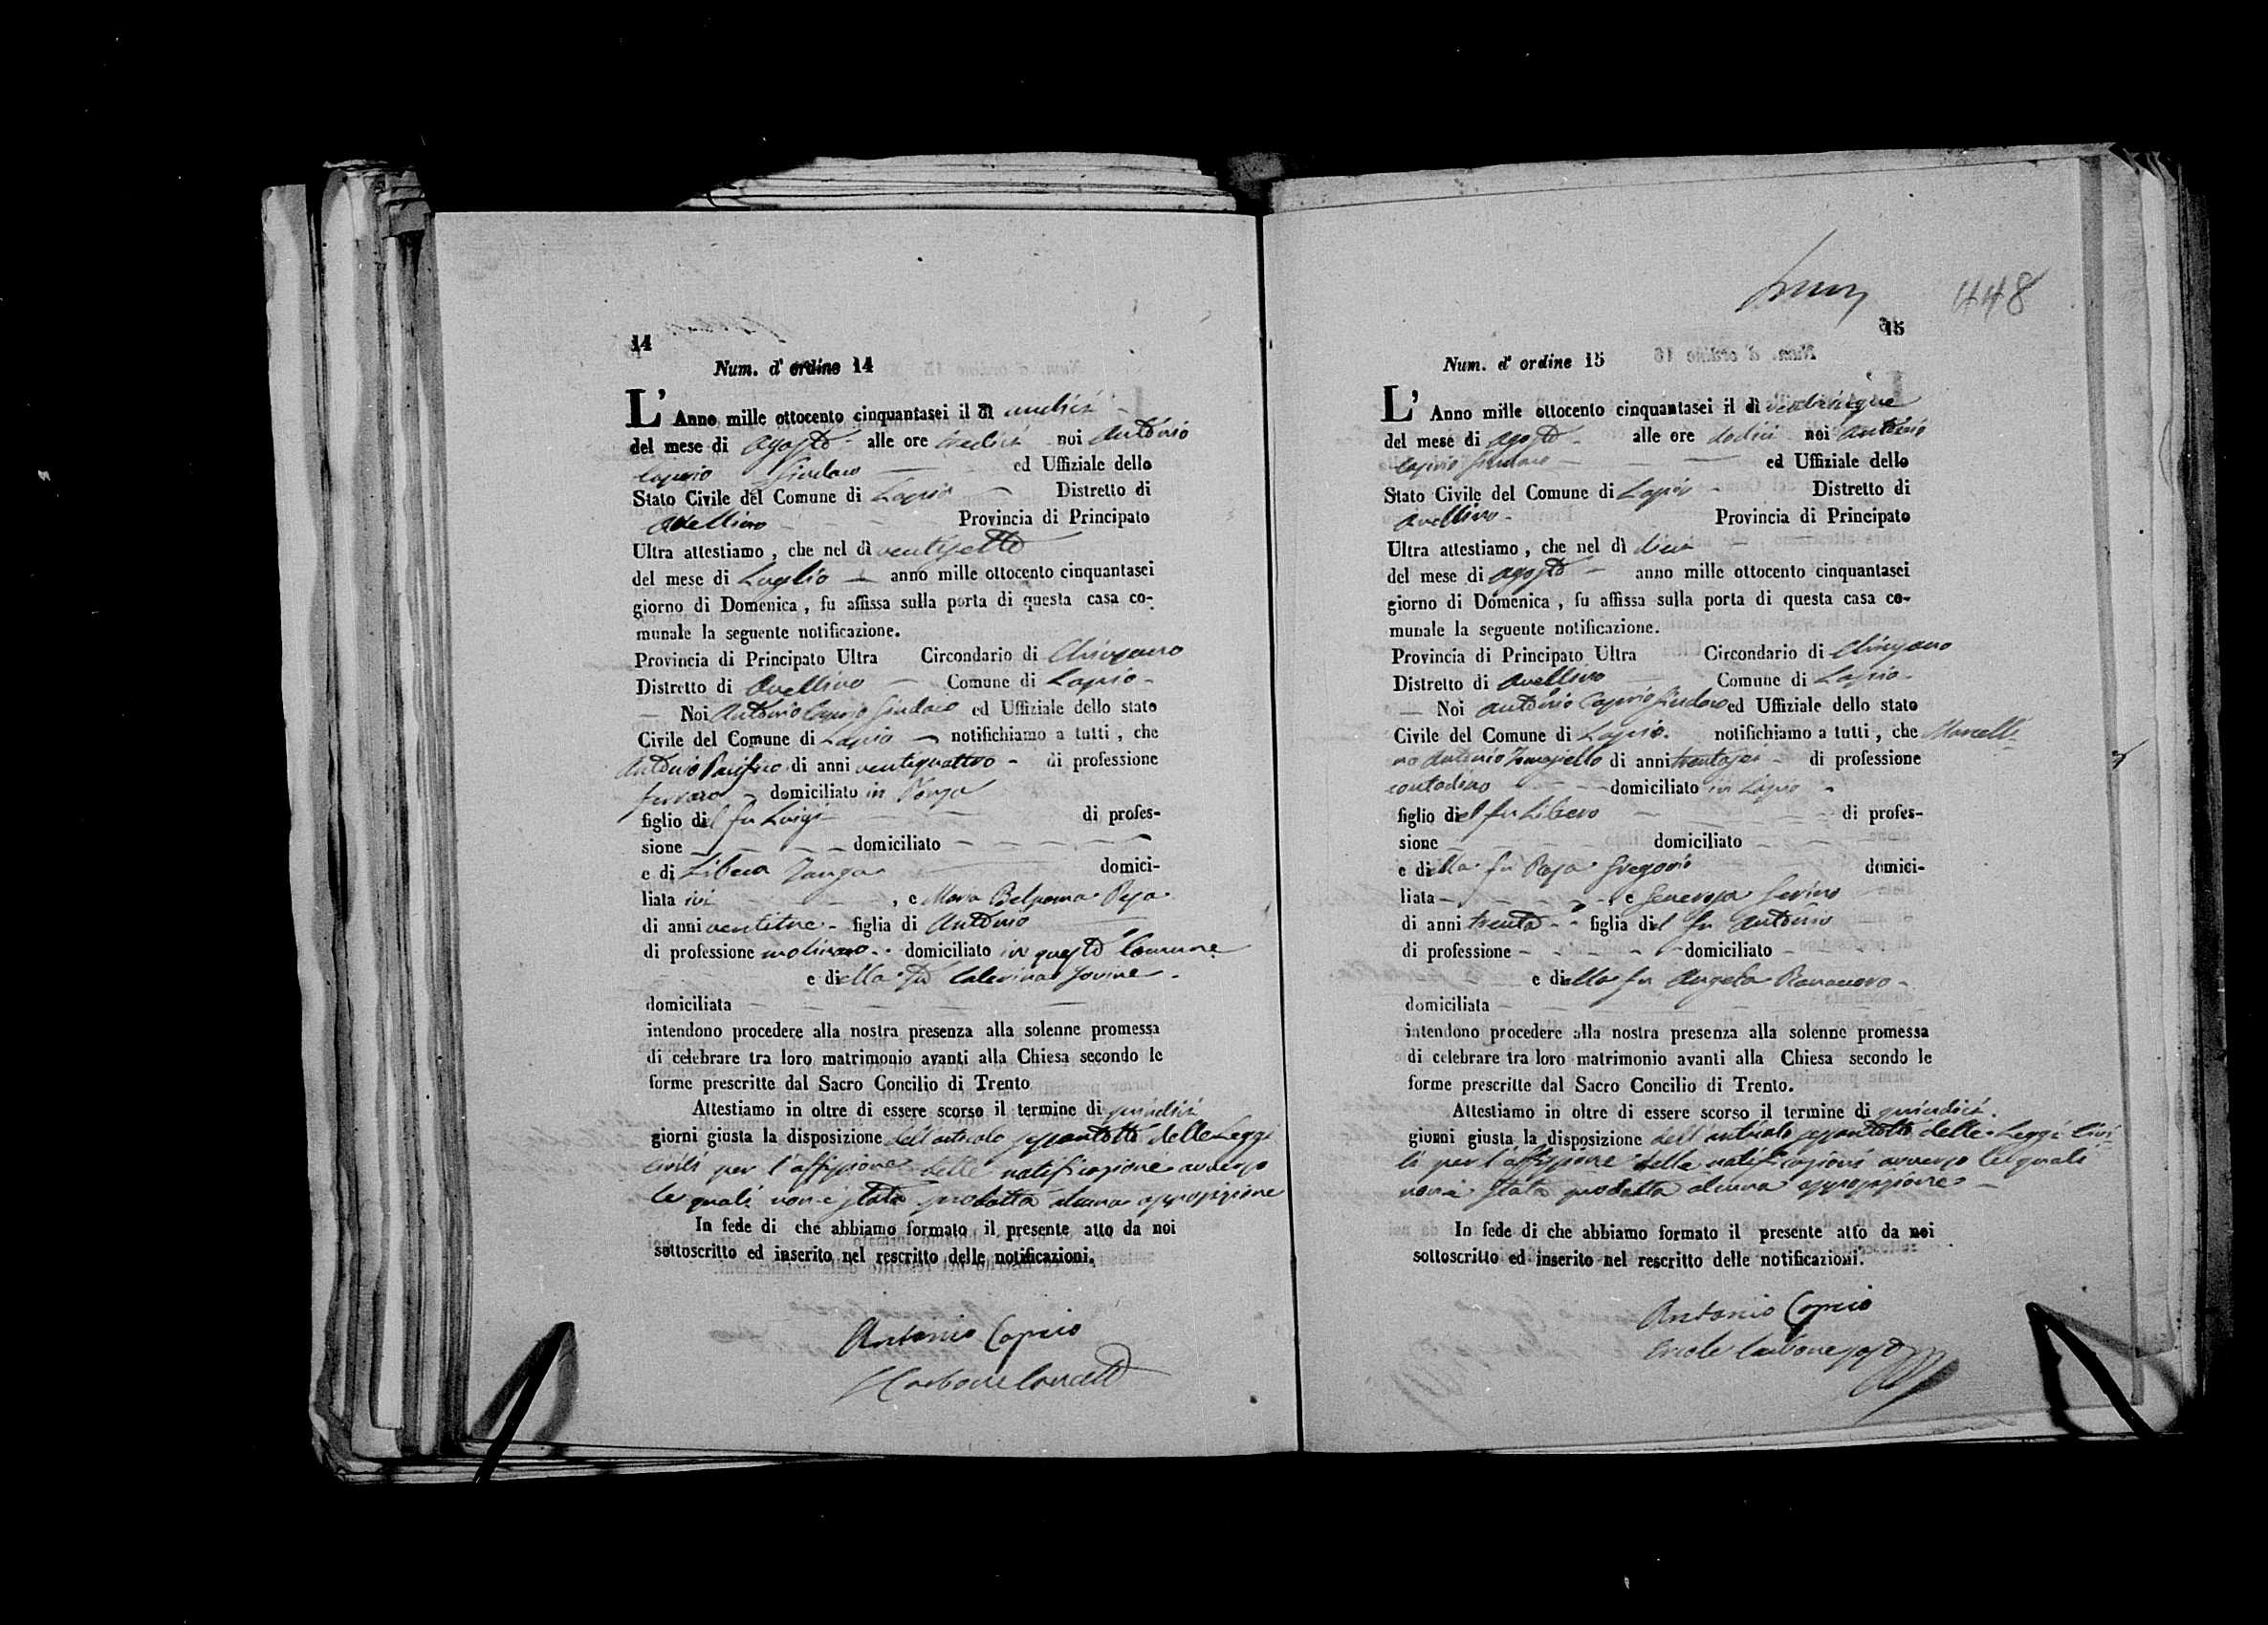 14
Num. d' ordine 14
L' Anno mille ottocento cinquantasei il dì undici
del mese di agosto alle ore tredici noi Antonio
Caprio Sindaco ed Uffiziale dello
Stato Civile del Comune di Lapio Distretto di
Avellino Provincia di Principato
Ultra attestiamo , che nel dì ventisette
del mese di Luglio anno mille ottocento cinquantasei
giorno di Domenica , fu affissa sulla porta di questa casa co-
munale la seguente notificazione.
Provincia di Principato Ultra Circondario di Chiusano
Distretto di Avellino Comune di Lapio
Noi Antonio Caprio Sindaco ed Uffiziale dello stato
Civile del Comune di Lapio notifichiamo a tutti , che
Antonio Pacifico di anni ventiquattro di professione
ferraro domiciliato in
figlio del fu Luigi di profes-
sione domiciliato
e di Libera Zanga domici-
liata ivi , e Maria Pepa
di anni ventitre figlia di Antonio
di professione molinaro domiciliato in questo Comune
e della fu Caterina Iovine
domiciliata
intendono procedere alla nostra presenza alla solenne promessa
di celebrare tra loro matrimonio avanti alla Chiesa secondo le
forme prescritte dal Sacro Concilio di Trento
Attestiamo in oltre di essere scorso il termine di quindici
giorni giusta la disposizione dell'articolo sessantotto delle Leggi
civili per l'affissione delle notificazione avverso
le quali non è stata prodotta alcuna opposizione
In fede di che abbiamo formato il presente atto da noi
sottoscritto ed inserito nel rescritto delle notificazioni.
Antonio Caprio
448
15
Num. d' ordine 15
L' Anno mille ottocento cinquantasei il dì venticinque
del mese di agosto alle ore dodici noi Antonio
Caprio Sindaco ed Uffiziale dello
Stato Civile del Comune di Lapio Distretto di
Avellino Provincia di Principato
Ultra attestiamo , che nel dì dieci
del mese di agosto anno mille ottocento cinquantasei
giorno di Domenica , fu affissa sulla porta di questa casa co-
munale la seguente notificazione.
Provincia di Principato Ultra Circondario di Chiusano
Distretto di Avellino Comune di Lapio
Noi Antonio Caprio Sindaco ed Uffiziale dello stato
Civile del Comune di Lapio notifichiamo a tutti , che Marcelli-
no Antonio Tomasiello di anni trentasei di professione
contadino domiciliato in Lapio
figlio del fu Libero di profes-
sione domiciliato
e della fu Rosa Gregorio domici-
liata , e Generosa Serino
di anni trenta figlia del fu Antonio
di professione domiciliato
e della fu Angela Romanno
domiciliata
intendono procedere alla nostra presenza alla solenne promessa
di celebrare tra loro matrimonio avanti alla Chiesa secondo le
forme prescritte dal Sacro Concilio di Trento.
Attestiamo in oltre di essere scorso il termine di quindici.
giorni giusta la disposizione dell'articolo sessantotto delle Leggi Civi-
li per l'affissione della notificazioni avverso le quali
non è stata prodotta alcuna opposizione
In fede di che abbiamo formato il presente atto da noi
sottoscritto ed inserito nel rescritto delle notificazioni.
Antonio Caprio
Ercole Carbone